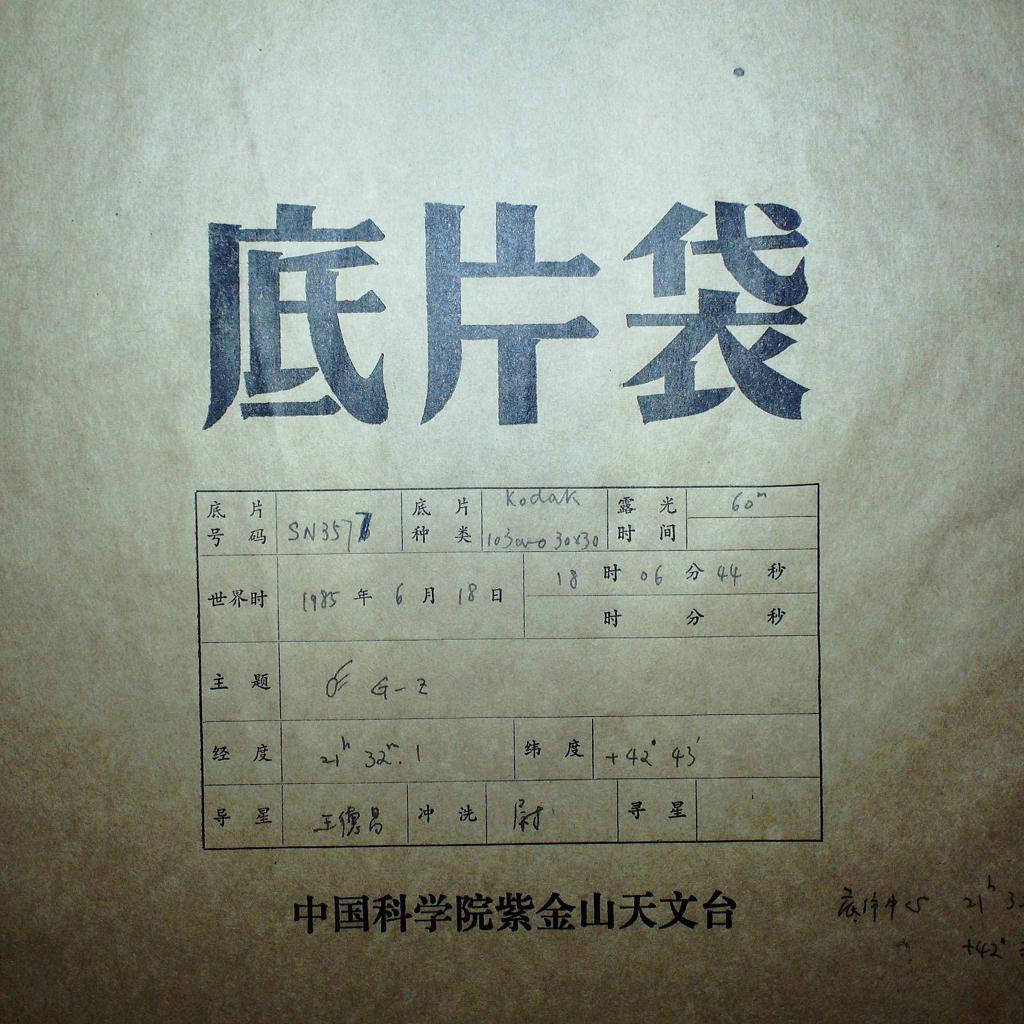 底片袋
底片号码 SN3577 底片种类 Kodak 103a-o 30x30 露光时间 60m
世界时 1985年6月18日 18时06分44秒
时 分 秒
主题 G-Z
经度 21h 32m.1 纬度 +42° 43′
导星 王德昌 冲洗 尉 寻星
中国科学院紫金山天文台
底片中心 21h 3
+42°